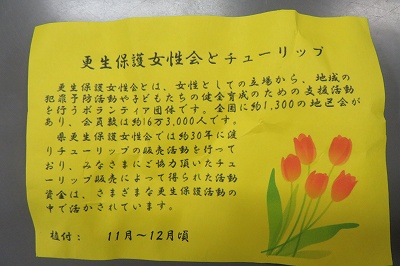 更生保護女性会とチューリップ
更生保護女性会とは、女性としての立場から、地域の
犯罪予防活動や子どもたちの健全育成のための支援活動
を行うボランティア団体です。全国に約1,300の地区会が
あり、会員数は約16万3,000人です。
県更生保護女性会では約30年に渡
りチューリップの販売活動を行って
おり、みなさまにご協力頂いたチュ
ーリップ販売によって得られた活動
資金は、さまざまな更生保護活動の
中で活かされています。
植付： 11月～12月頃